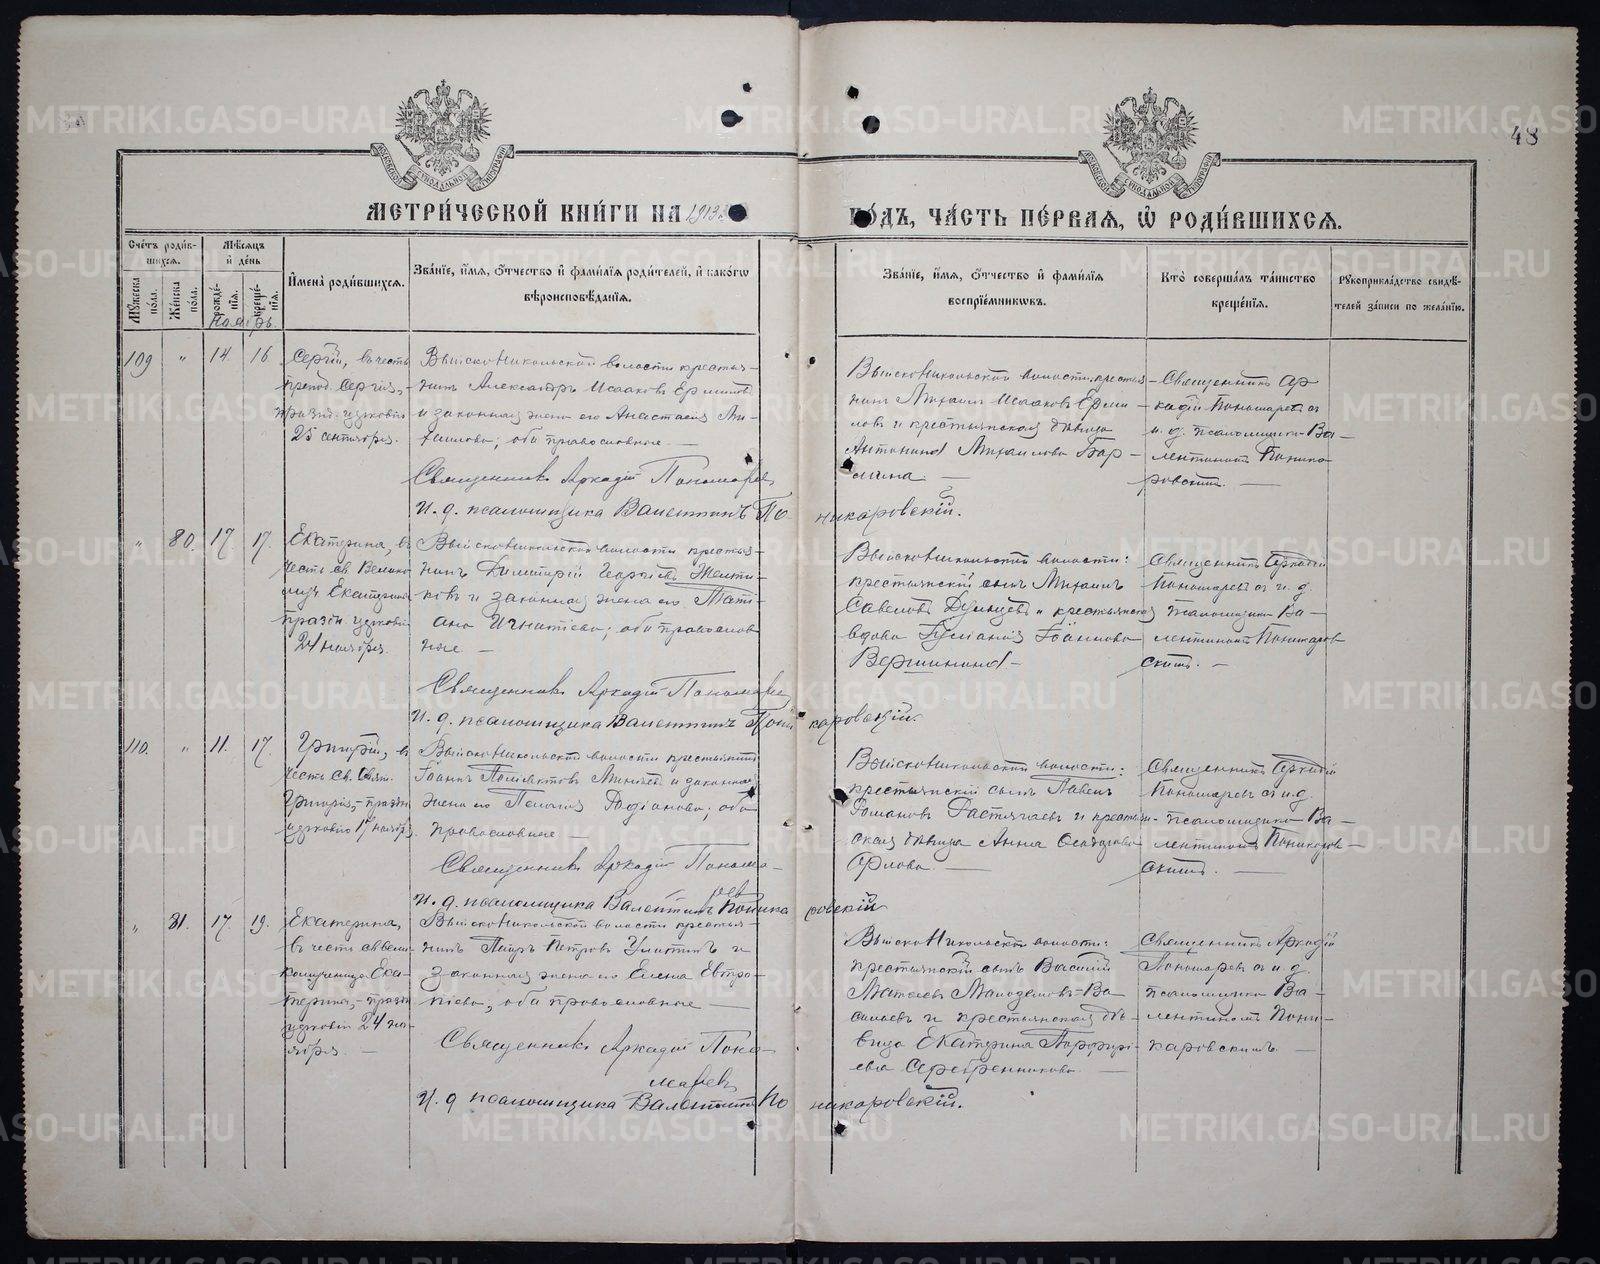 48
МОСКОВСКОЙ СѴНОДАЛЬНОЙ ТИПОГРАФІИ
МОСКОВСКОЙ СѴНОДАЛЬНОЙ ТИПОГРАФІИ
МЕТРИ́ЧЕСКОЙ КНИ́ГИ НА 1913
ГО́ДЪ, ЧА́СТЬ ПЕ́РВАЯ, Ѡ РОДИ́ВШИХСЯ.
Сче́тъ роди́в-
шихся.
Му́жеска по́ла.
Же́нска по́ла.
Мѣ́сяцъ
и́ де́нь
рожде́-
нїя.
креще-
нїя.
Ноябрь.
И҆мена̀ роди́вшихся.
Зва́нїе, и҆́мя, о҆́тчество и҆ фами́лїя роди́телей, и҆ како́гѡ
вѣроисповѣ́данїя.
Зва́нїе, и҆́мя, о҆́тчество и҆ фами́лїя
воспрїе́мниковъ.
Кто̀ соверша́лъ та́инство
креще́нїя.
Рукоприкла́дство свидѣ́-
телей за́писи по жела́нїю.
109 " 14 16
Сергій, въ честь
препод. Сергія,
празд. церковію
25 сентября.
Выйско Никольской волости крестья-
нинъ Александръ Исааковъ Ермиловъ
и законная жена его Анастасія Ми-
хаилова; оба православные. —
Выйско Никольской волости крестья-
нинъ Михаилъ Исааковъ Ерми-
ловъ и крестьянская дѣвица
Антонина Михаилова Бар-
мина. —
Священникъ Ар-
кадій Пономаревъ съ
и. д. псаломщика Ва-
лентиномъ Поника-
ровскимъ. —
Священникъ Аркадій Пономаревъ
И. д. псаломщика Валентинъ По-
никаровскій.
" 80. 17 17.
Екатерина, въ
честь св. Велико-
муч. Екатерины
празн. церковію
24 ноября.
Выйско Никольской волости крестья-
нинъ Димитрій Георгіевъ Желти-
ковъ и законная жена его Тати-
ана Игнатіева; оба православ-
ные —
Выйско Никольской волости:
крестьянскій сынъ Михаилъ
Савеловъ и крестьянская
вдова Іуліанія Іоаннова
Вершинина —
Священникъ Аркадій
Пономаревъ съ и. д.
псаломщика Ва-
лентиномъ Поникаров-
скимъ. —
Священникъ Аркадій Пономаревъ
И. д. псаломщика Валентинъ Пони-
каровскій.
110. " 11. 17.
Григорій, въ
честь Св.
Григорія, - празн.
церковію ноября.
Выйско Никольской волости крестьянинъ
Іоаннъ и законная
жена его Пелагія Родіонова; оба
православные —
Выйско Никольской волости:
крестьянскій сынъ Павелъ
Романовъ Растягаевъ и крестьян-
ская дѣвица Анна
Орлова. —
Священникъ Аркадій
Пономаревъ съ и. д.
псаломщика Ва-
лентиномъ Поникаров-
скимъ. —
Священникъ Аркадій Понома-
ревъ
И. д. псаломщика Валентинъ Поника-
ровскій
" 81. 17. 19.
Екатерина,
въ честь св вели-
комученицы Ека-
терины, - празн
церковію 24 но-
ября. —
Выйско Никольской волости крестья-
нинъ Петръ Петровъ Улитинъ и
законная жена его Елена Евтро-
піева; оба православные —
Выйско Никольской волости:
крестьянскій сынъ Василій
Матѳеевъ Ва-
сильевъ и крестьянская дѣ-
вица Екатерина Порфирі-
ева Серебренникова. —
Священникъ Аркадій
Пономаревъ съ и д.
псаломщика Ва-
лентиномъ Пони-
каровскимъ. —
Священникъ Аркадій Поно-
маревъ
И. д псаломщика Валентинъ По-
никаровскій.
METRIKI.GASO-URAL.RU